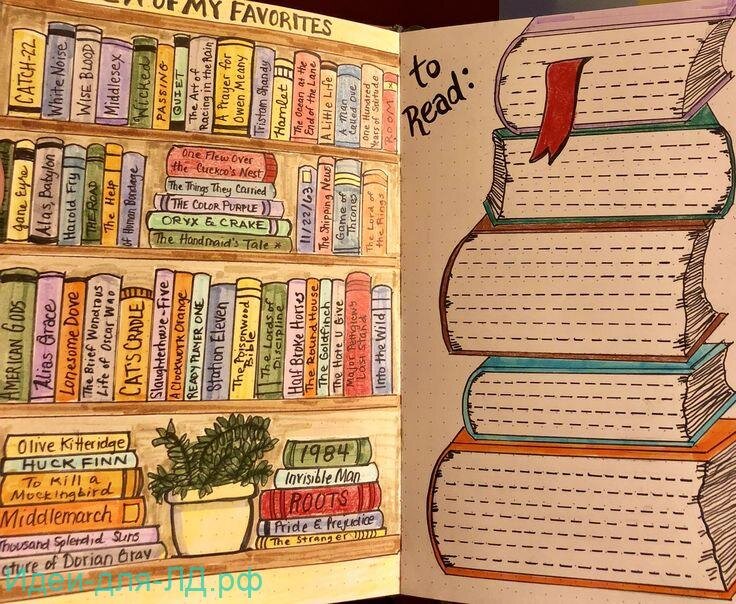 OF MY FAVORITES
CATCH-22
White Noise
WISE BLOOD
Middlesex
Wicked
PASSING
QUIET
The Art of
Racing in the Rain
A Prayer for
Owen Meany
Tristan Shandy
Hamlet
The Ocean at the
End of the Lane
A Little Life
A Man
Called Ove
One Hundred
Years of Solitude
ROOM
Jane Eyre
Alas, Babylon
Harold Fry
THE ROAD
The Help
Of Human Bondage
One Flew Over
the Cuckoo's Nest
The Things They Carried
THE COLOR PURPLE
ORYX & CRAKE
The Handmaid's Tale
11/22/63
The Shipping News
Game of
Thrones
The Lord of
the Rings
AMERICAN GODS
Alias Grace
Lonesome Dove
The Brief Wondrous
Life of Oscar Wao
CAT'S CRADLE
Slaughterhouse-Five
A Clockwork Orange
READY PLAYER ONE
Station Eleven
The Poisonwood
Bible
The Lords of
Discipline
Half Broke Horses
The Round House
The Goldfinch
The Hate U Give
Major Pettigrew's
Last Stand
Into the Wild
Olive Kitteridge
HUCK FINN
To Kill a
Mockingbird
Middlemarch
Thousand Splendid Suns
cture of Dorian Gray
1984
Invisible Man
ROOTS
Pride & Prejudice
The Stranger
to
Read:
Идеи-для-ЛД.рф